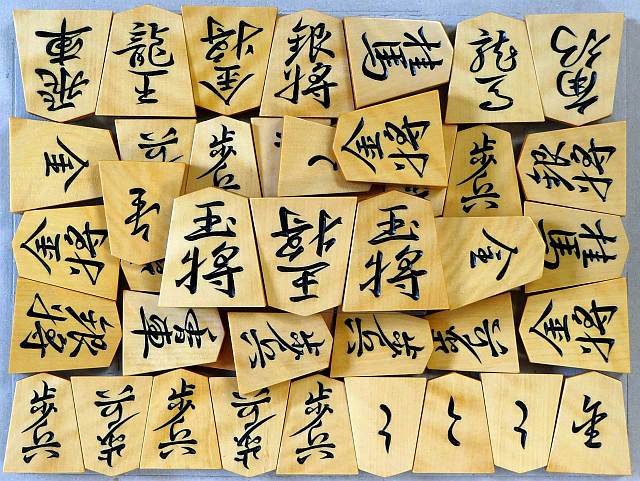 飛車
龍王
金将
銀将
桂馬
龍馬
角行
金
歩兵
金将
歩兵
銀将
金将
玉将
王将
玉将
金
桂馬
銀将
香車
歩兵
歩兵
金将
歩兵
歩兵
歩兵
歩兵
歩兵
と
と
と